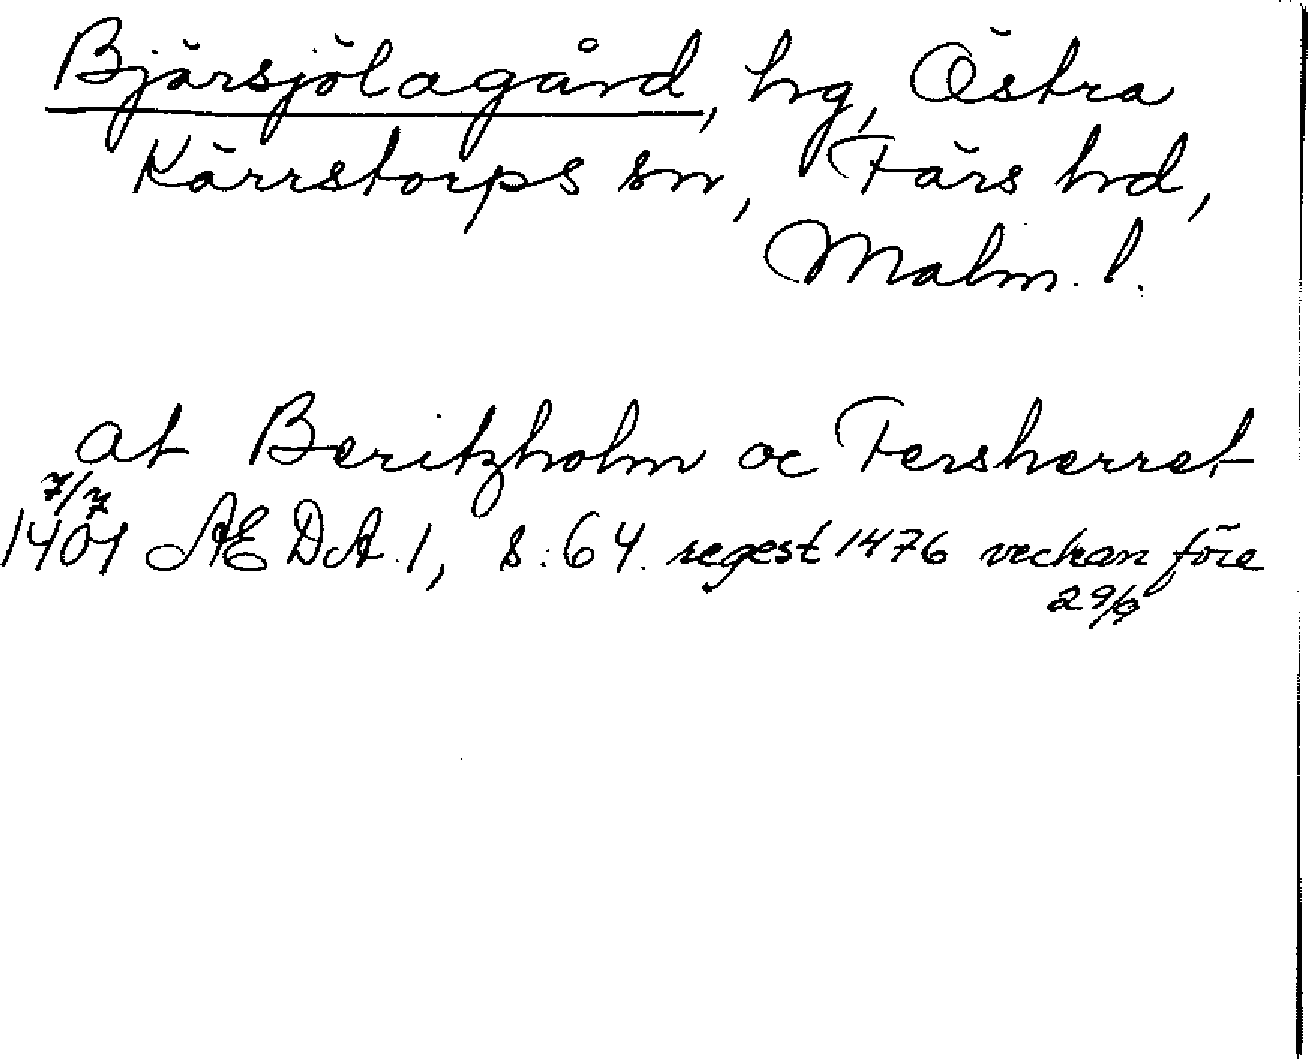 Bjärsjölagård, hg, Östra
Kärrstorps sn, Färs hd,
Malm. l.
at Beritzholm oc Fersherret
7/7
1401 ÆDA. 1, s. 64. regest 1476 veckan före
29/9